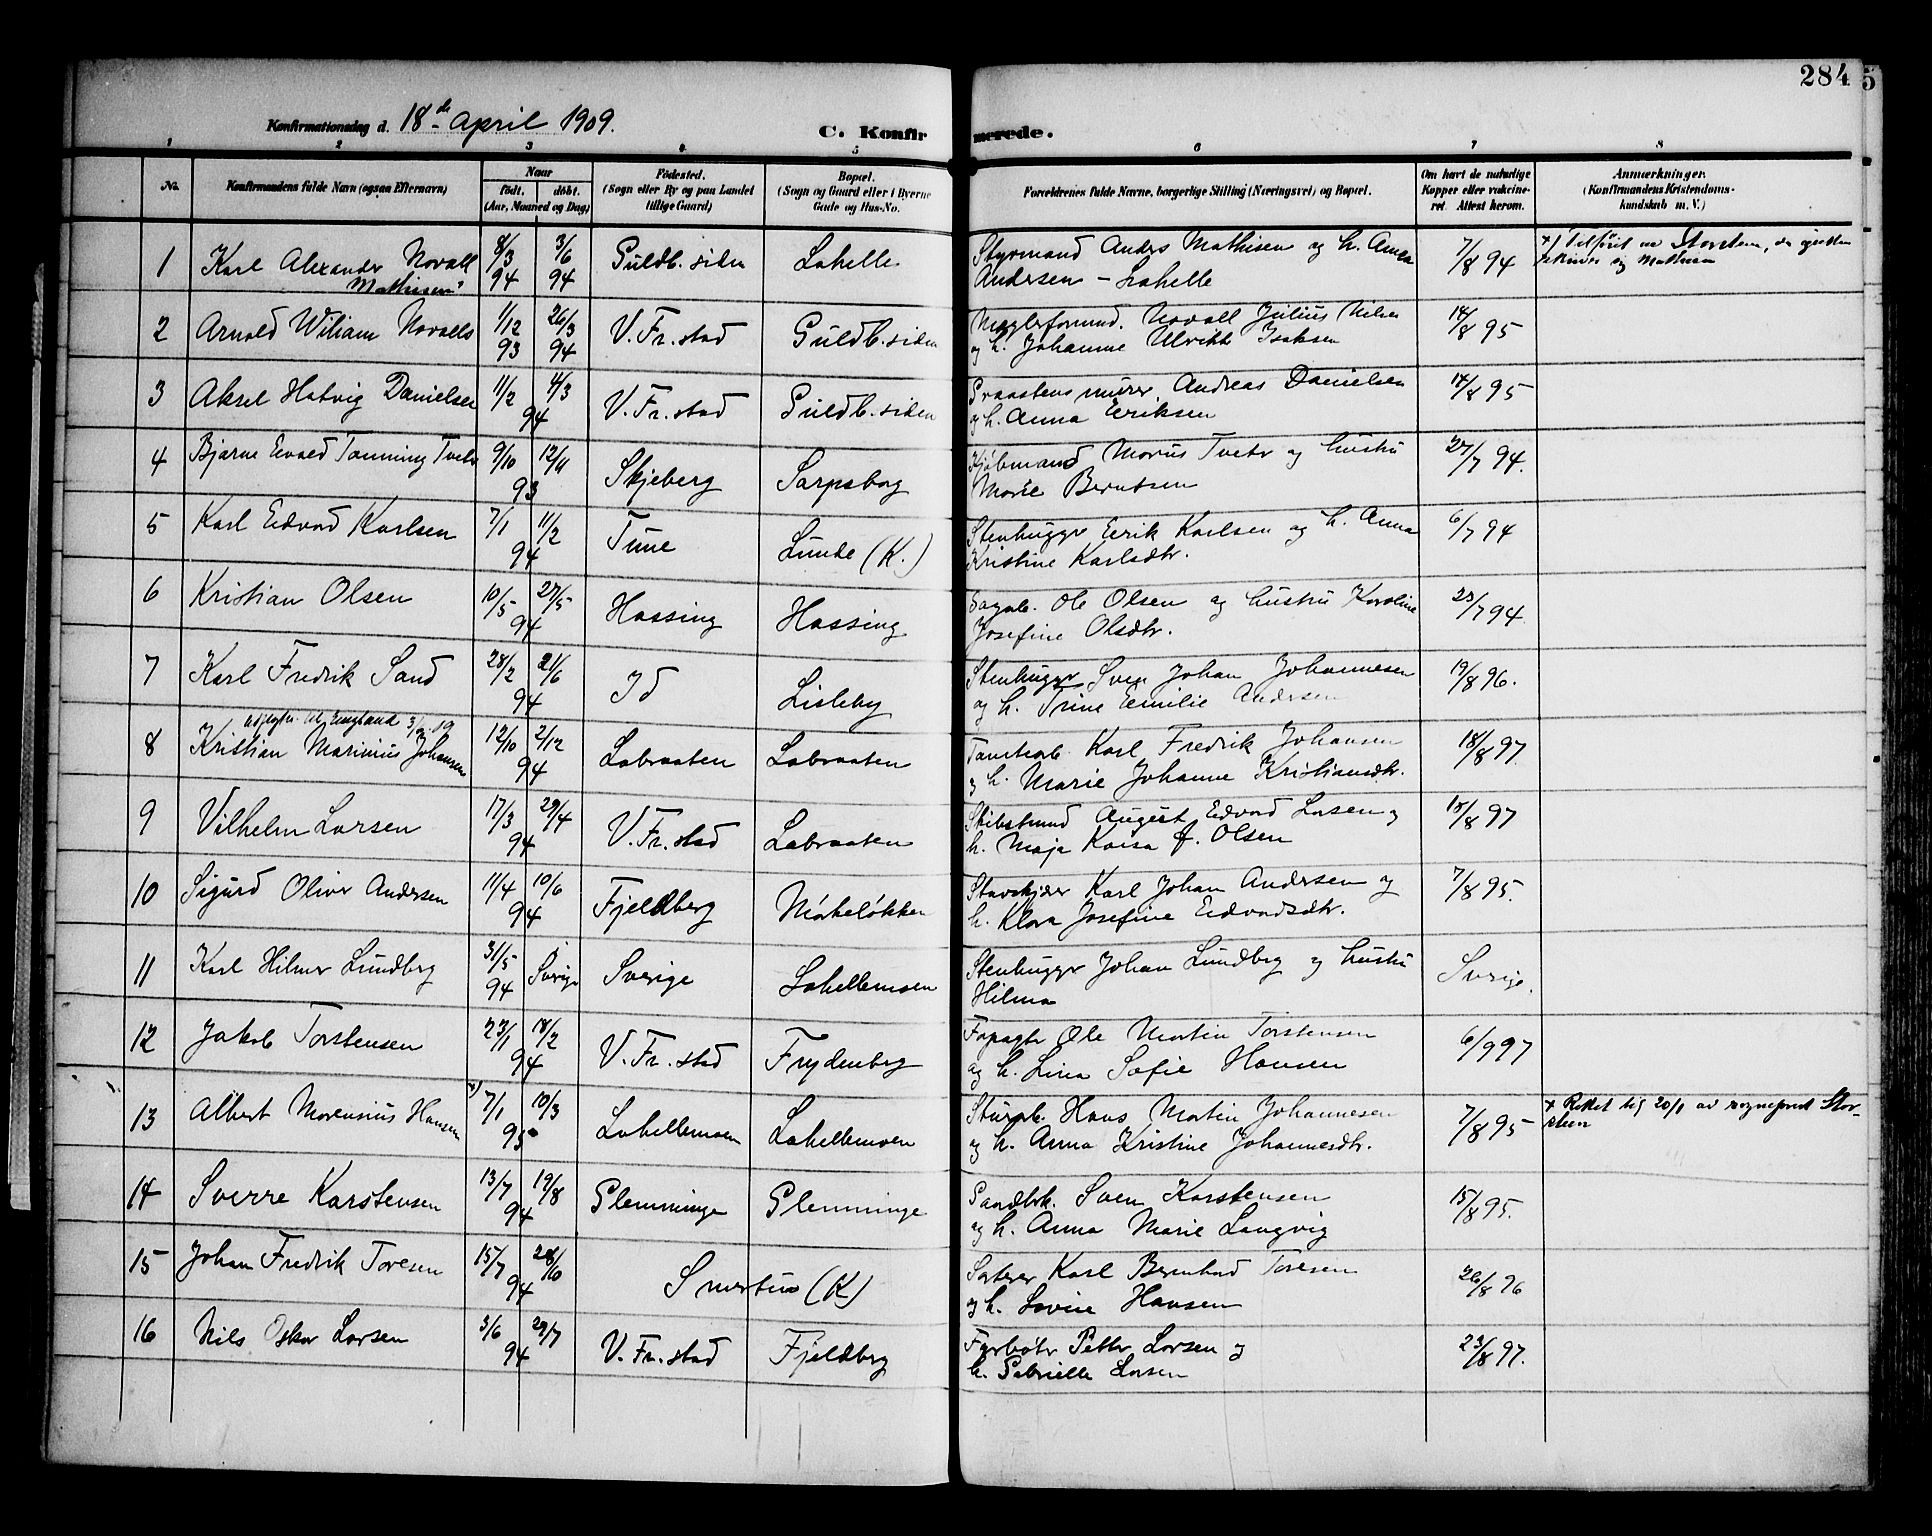 284
5
Konfirmationsdag d. 18de April 1909.
C. Konfirmerede.
1 2 3 4 5 6 7 8
No.
Konfirmandens fulde Navn (ogsaa Efternavn)
Naar
født. døbt.
(Aar, Maaned og Dag)
Fødested.
(Sogn eller By og paa Landet
tillige Gaard)
Bopæl.
(Sogn og Gaard eller i Byerne
Gade og Hus-No.
Forældrenes fulde Navne, borgerlige Stilling (Næringsvei) og Bopæl.
Om havt de naturlige
Kopper eller vakcine-
ret Attest herom.
Anmærkninger.
(Konfirmandens Kristendoms-
kundskab m. V.)
1 Karl Alexander Novall 8/3 94 3/6 94 Guldb. siden Lahelle Styrmand Anders Mathisen og h. Anna 7/8 94 x) Tilført av Storsten,
Mathisen Andersen - Lahelle sig Mathisen
2 Arnold Wiliam Novalls 1/12 93 26/3 94 V. Fr. stad Guldb. siden Novall Julius Nilsen 14/8 95
og h. Johanne Ulrikke Isaksen
3 Aksel Hatvig Danielsen 11/2 4/3 94 V. Fr. stad Guldb. siden Graastensmurer Andreas Danielsen 14/8 95
og h. Anna Eriksen
4 Bjarne Evald Tanning Tvete 9/10 12/11 93 Skjeberg Sarpsborg Kjøbmand Morus Tvete og hustru 27/7 94.
Marie Berntsen
5 Karl Edvard Karlsen 7/1 11/2 94 Tune Lunde (K.) Stenhugger Eerik Karlsen og h. Anna 6/7 94
Kristine Karlsdtr.
6 Kristian Olsen 10/5 27/5 94 Hassing Hassing Ole Olsen og hustru Karoline 23/7 94.
Josefine Olsdtr.
7 Karl Fredrik Sand 28/2 21/6 94 Id Lisleby Stenhugger Sven Johan Johannesen 19/8 96.
og h. Trine Eemilie Andersen
til England
8 Kristian Marinius Johansen 12/10 2/12 94 Labraaten Labraaten Karl Fredrik Johansen 18/8 97
og h. Marie Johanne Kristiansdtr.
9 Vilhelm Larsen 17/3 29/4 94 V. Fr. stad Labraaten August Edvard Larsen og 18/8 97
h. Maja Kaisa f. Olsen
10 Sigurd Oliver Andersen 11/4 10/6 94 Fjeldberg Mørkeløkken Stavskjærer Karl Johan Andersen og 7/8 95.
h. Klara Josefine Eedvardsdtr.
11 Karl Hilmer Lundberg 31/5 94 Sverige Sverige Lahellemoen Stenhugger Johan Lundberg og hustru Sverige.
Hilma
12 Jakob Torstensen 23/1 18/2 94 V. Fr. stad Frydenberg Ole Martin Torstensen 6/9 97
og h. Lina Sofie Hansen
13 Albert Marensius Hansen x) 7/1 10/3 95 Lahellemoen Lahellemoen Hans Martin Johannesen 7/8 95 x Rettet 20/1 av sogneprest Stor-
og h. Anna Kristine Johannesdtr. sten
14 Sverre Karstensen 13/7 19/8 94 Glemminge Glemminge Sven Karstensen 15/8 95.
og h. Anna Marie Langvig
15 Johan Fredrik Toresen 15/7 28/10 94 Smertun (K) Sorterer Karl Bernhard Toresen 26/8 96
og h. Lovise Hansen
16 Nils Oskar Larsen 3/6 29/7 94 V. Fr. stad Fjeldberg Fyrbøter Petter Larsen og 23/8 97.
h. Gabrielle Larsen